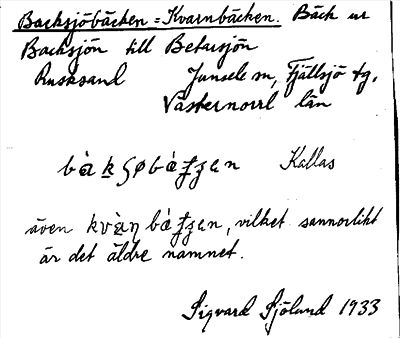 Backsjöbäcken = Kvarnbäcken. Bäck ur
Backsjön till Betarsjön
Rusksand Junsele sn, Fjällsjö tg,
Västernorrl län
Kallas
även kvàŋ, vilket sannolikt
är det äldre namnet.
Sigvard Sjölund 1933